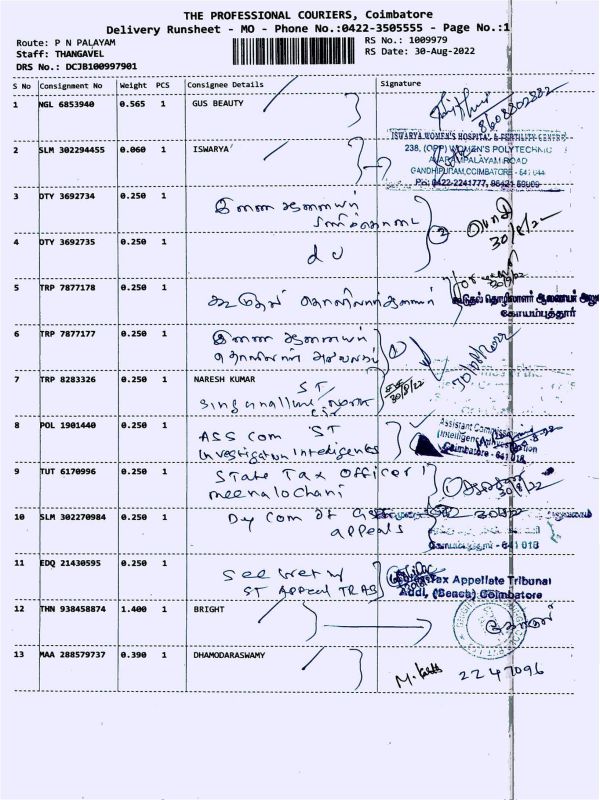 THE PROFESSIONAL COURIERS, Coimbatore
Delivery Runsheet - MO - Phone No.:0422-3505555 - Page No.:1
Route: P N PALAYAM
Staff: THANGAVEL
DRS No.: DCJB100997901
RS No.: 1009979
RS Date: 30-Aug-2022
S No Consignment No Weight PCS Consignee Details Signature
1 NGL 6853940 0.565 1 GUS BEAUTY
8608802882
ISWARYA WOMEN'S HOSPITAL & FERTILITY CENTRE
2 SLM 302294455 0.060 1 ISWARYA
238, (OPP) WOMEN'S POLYTECHNIC
AVARAMPALAYAM ROAD
GANDHIPURAM, COIMBATORE - 641 044
3 DTY 3692734 0.250 1
30/8/22
4 DTY 3692735 0.250 1 d o
5 TRP 7877178 0.250 1
கூடுதல் தொழிலாளர் ஆணையர்
கோயம்புத்தூர்
6 TRP 7877177 0.250 1 இணை ஆணையர்
30/08/2022
7 TRP 8283326 0.250 1 NARESH KUMAR
ST
Singanallur North
Cir
30/8/22
8 POL 1901440 0.250 1 ASS Com ST
Investigation Inteligences
Assistant Commiss
Coimbatore - 641 018
9 TUT 6170996 0.250 1 State Tax Officer
meenalochani
30/8/22
10 SLM 302270984 0.250 1 Dy Com of GST
appeals
30/8/22
கோயம்புத்தூர் - 641 018
11 EDQ 21430595 0.250 1 Secretary
ST Appeal TRAB
Tax Appellate Tribunal
Addl. (Bench) Coimbatore
12 THN 938458874 1.400 1 BRIGHT
13 MAA 288579737 0.390 1 DHAMODARASWAMY
2247096